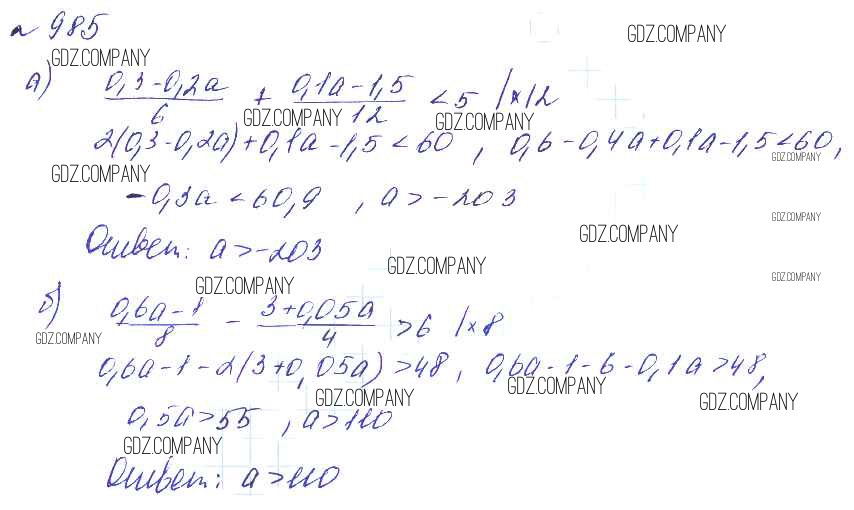 № 985
GDZ.COMPANY
GDZ.COMPANY
а) (0,3-0,2a)/6 + (0,1a-1,5)/12 < 5 |×12
GDZ.COMPANY GDZ.COMPANY
2(0,3-0,2a)+0,1a-1,5<60, 0,6-0,4a+0,1a-1,5<60,
GDZ.COMPANY
GDZ.COMPANY
-0,3a<60,9, a>-203
GDZ.COMPANY
GDZ.COMPANY
Ответ: a>-203
GDZ.COMPANY
GDZ.COMPANY
GDZ.COMPANY
б) (0,6a-1)/8 - (3+0,05a)/4 >6 |×8
GDZ.COMPANY
0,6a-1-2(3+0,05a)>48, 0,6a-1-6-0,1a>48,
GDZ.COMPANY
GDZ.COMPANY
GDZ.COMPANY
0,5a>55, a>110
GDZ.COMPANY
Ответ: a>110